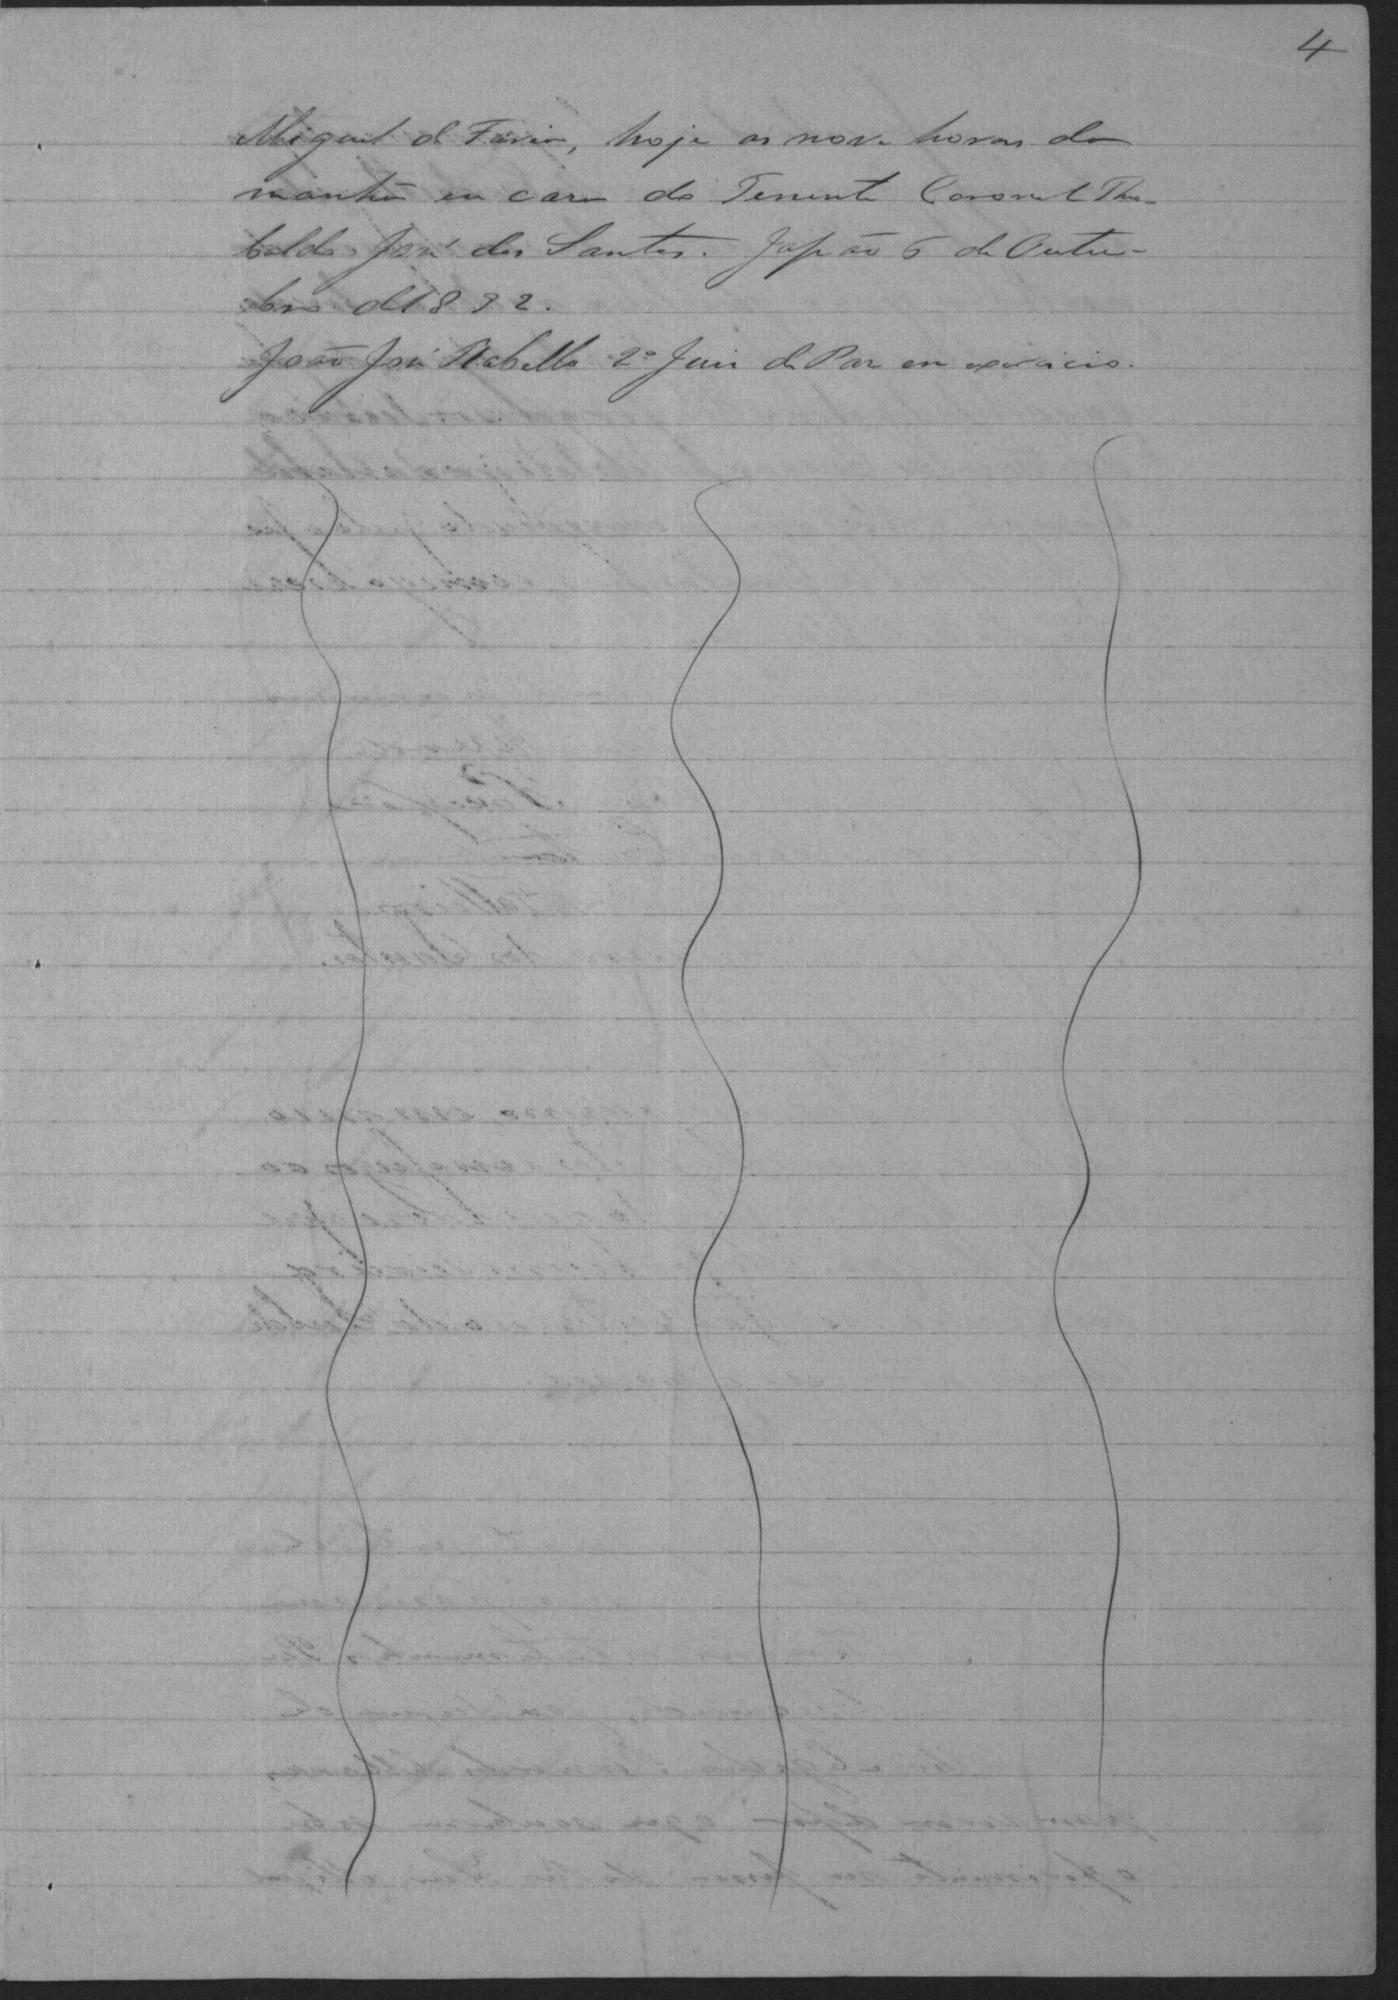 4
Miguel de Faria, hoje as nove horas da
manhã em casa do Tenente Coronel Theo-
baldo José dos Santos. Japão 6 de Outu-
bro de 1892.
João José Rabello 2º Juis de Paz em exercicio.